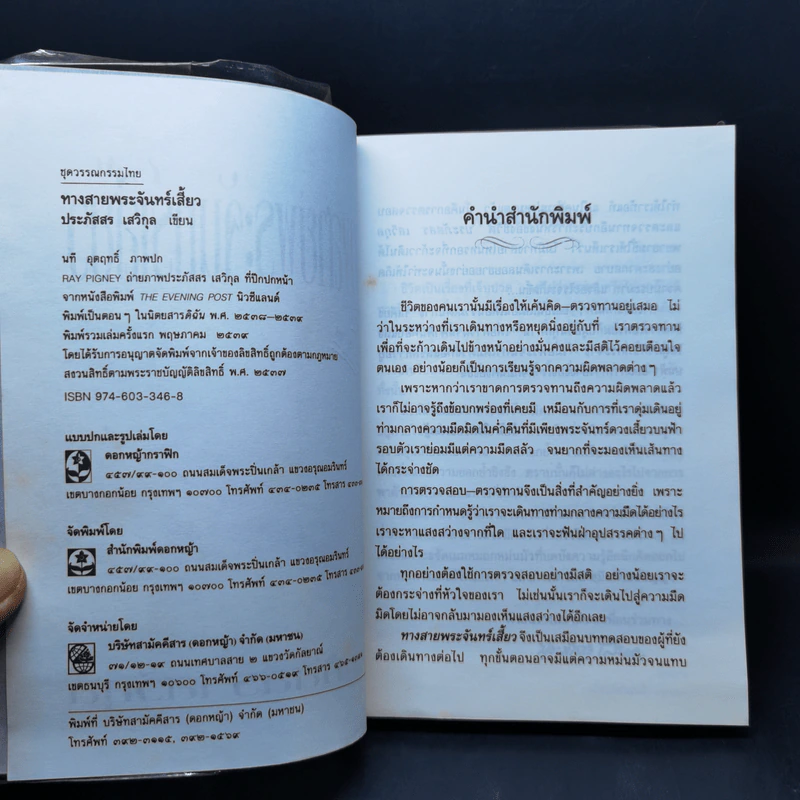 ชุดวรรณกรรมไทย
ทางสายพระจันทร์เสี้ยว
ประภัสสร เสวิกุล เขียน
นที อุดฤทธิ์ ภาพปก
RAY PIGNEY ถ่ายภาพประภัสสร เสวิกุล ที่ปีกปกหน้า
จากหนังสือพิมพ์ THE EVENING POST นิวซีแลนด์
พิมพ์เป็นตอน ๆ ในนิตยสารดิฉัน พ.ศ. ๒๕๓๘–๒๕๓๙
พิมพ์รวมเล่มครั้งแรก พฤษภาคม ๒๕๓๙
โดยได้รับการอนุญาตจัดพิมพ์จากเจ้าของลิขสิทธิ์ถูกต้องตามกฎหมาย
สงวนสิทธิ์ตามพระราชบัญญัติลิขสิทธิ์ พ.ศ. ๒๕๓๗
ISBN 974-603-346-8
แบบปกและรูปเล่มโดย
ดอกหญ้ากราฟิก
๔๕๗/๙๙-๑๐๐ ถนนสมเด็จพระปิ่นเกล้า แขวงอรุณอมรินทร์
เขตบางกอกน้อย กรุงเทพฯ ๑๐๗๐๐ โทรศัพท์ ๔๓๔-๐๒๓๕ โทรสาร
จัดพิมพ์โดย
สำนักพิมพ์ดอกหญ้า
๔๕๗/๙๙-๑๐๐ ถนนสมเด็จพระปิ่นเกล้า แขวงอรุณอมรินทร์
เขตบางกอกน้อย กรุงเทพฯ ๑๐๗๐๐ โทรศัพท์ ๔๓๔-๐๒๓๕ โทรสาร
จัดจำหน่ายโดย
บริษัทสามัคคีสาร (ดอกหญ้า) จำกัด (มหาชน)
๗๑/๑๒-๑๙ ถนนเทศบาลสาย ๒ แขวงวัดกัลยาณ์
เขตธนบุรี กรุงเทพฯ ๑๐๖๐๐ โทรศัพท์ ๔๖๖-๐๕๑๙ โทรสาร
พิมพ์ที่ บริษัทสามัคคีสาร (ดอกหญ้า) จำกัด (มหาชน)
โทรศัพท์ ๓๙๒-๓๑๑๕, ๓๙๒-๑๕๖๙
คำนำสำนักพิมพ์
ชีวิตของคนเรานั้นมีเรื่องให้เค้นคิด–ตรวจทานอยู่เสมอ ไม่
ว่าในระหว่างที่เราเดินทางหรือหยุดนิ่งอยู่กับที่ เราตรวจทาน
เพื่อที่จะก้าวเดินไปข้างหน้าอย่างมั่นคงและมีสติไว้คอยเตือนใจ
ตนเอง อย่างน้อยก็เป็นการเรียนรู้จากความผิดพลาดต่าง ๆ
เพราะหากว่าเราขาดการตรวจทานถึงความผิดพลาดแล้ว
เราก็ไม่อาจรู้ถึงข้อบกพร่องที่เคยมี เหมือนกับการที่เราดุ่มเดินอยู่
ท่ามกลางความมืดมิดในค่ำคืนที่มีเพียงพระจันทร์ดวงเสี้ยวบนฟ้า
รอบตัวเราย่อมมีแต่ความมืดสลัว จนยากที่จะมองเห็นเส้นทาง
ได้กระจ่างชัด
การตรวจสอบ–ตรวจทานจึงเป็นสิ่งที่สำคัญอย่างยิ่ง เพราะ
หมายถึงการกำหนดรู้ว่าเราจะเดินทางท่ามกลางความมืดได้อย่างไร
เราจะหาแสงสว่างจากที่ใด และเราจะฟันฝ่าอุปสรรคต่าง ๆ ไป
ได้อย่างไร
ทุกอย่างต้องใช้การตรวจสอบอย่างมีสติ อย่างน้อยเราจะ
ต้องกระจ่างที่หัวใจของเรา ไม่เช่นนั้นเราก็จะเดินไปสู่ความมืด
มิดโดยไม่อาจกลับมามองเห็นแสงสว่างได้อีกเลย
ทางสายพระจันทร์เสี้ยว จึงเป็นเสมือนบททดสอบของผู้ที่ยัง
ต้องเดินทางต่อไป ทุกขั้นตอนอาจมีแต่ความหม่นมัวจนแทบ